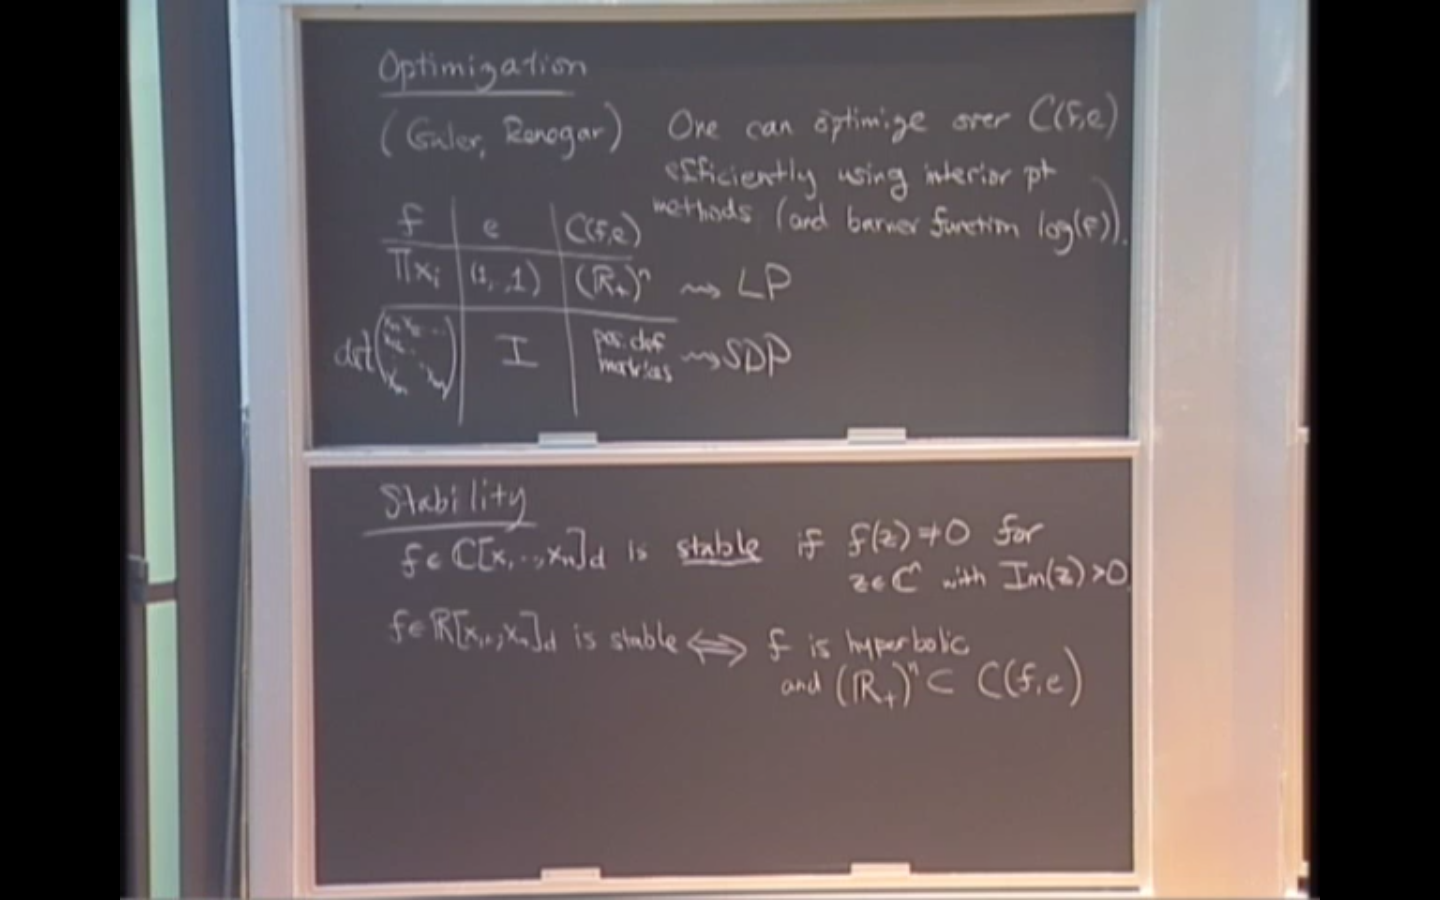 Optimization
(Guler, Renegar) One can optimize over C(f,e)
efficiently using interior pt
methods (and barrier function log(f)).
f | e | C(f,e)
∏xᵢ | (1,..,1) | (ℝ₊)ⁿ ⇝ LP
det( ) | I | pos. def matrices ⇝ SDP
Stability
f ∈ ℂ[x,..,xₙ]_d is stable if f(z) ≠ 0 for
z ∈ ℂⁿ with Im(z) > 0.
f ∈ ℝ[x₁,..,xₙ]_d is stable ⟺ f is hyperbolic
and (ℝ₊)ⁿ ⊂ C(f,e)